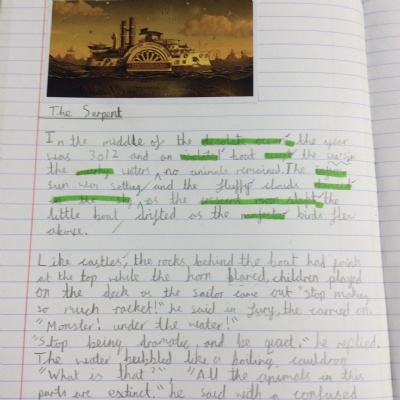 The Serpent
In the middle of the desolate ocean the year
was 3012 and an isolated boat the
the murky waters, no animals remained. The
sun was setting and the fluffy clouds
as the crescent moon slept the
little boat drifted as the majestic birds flew
above.
Like castles, the rocks behind the boat had points
at the top while the horn blared, children played
on the deck as the sailor came out "stop making
so much racket!" he said in fury, the carried on
"Monster! under the water!"
"Stop being dramatic and be quiet," he replied.
The water bubbled like a boiling cauldron
"What is that?", "All the animals in this
parts are extinct." he said with a confused